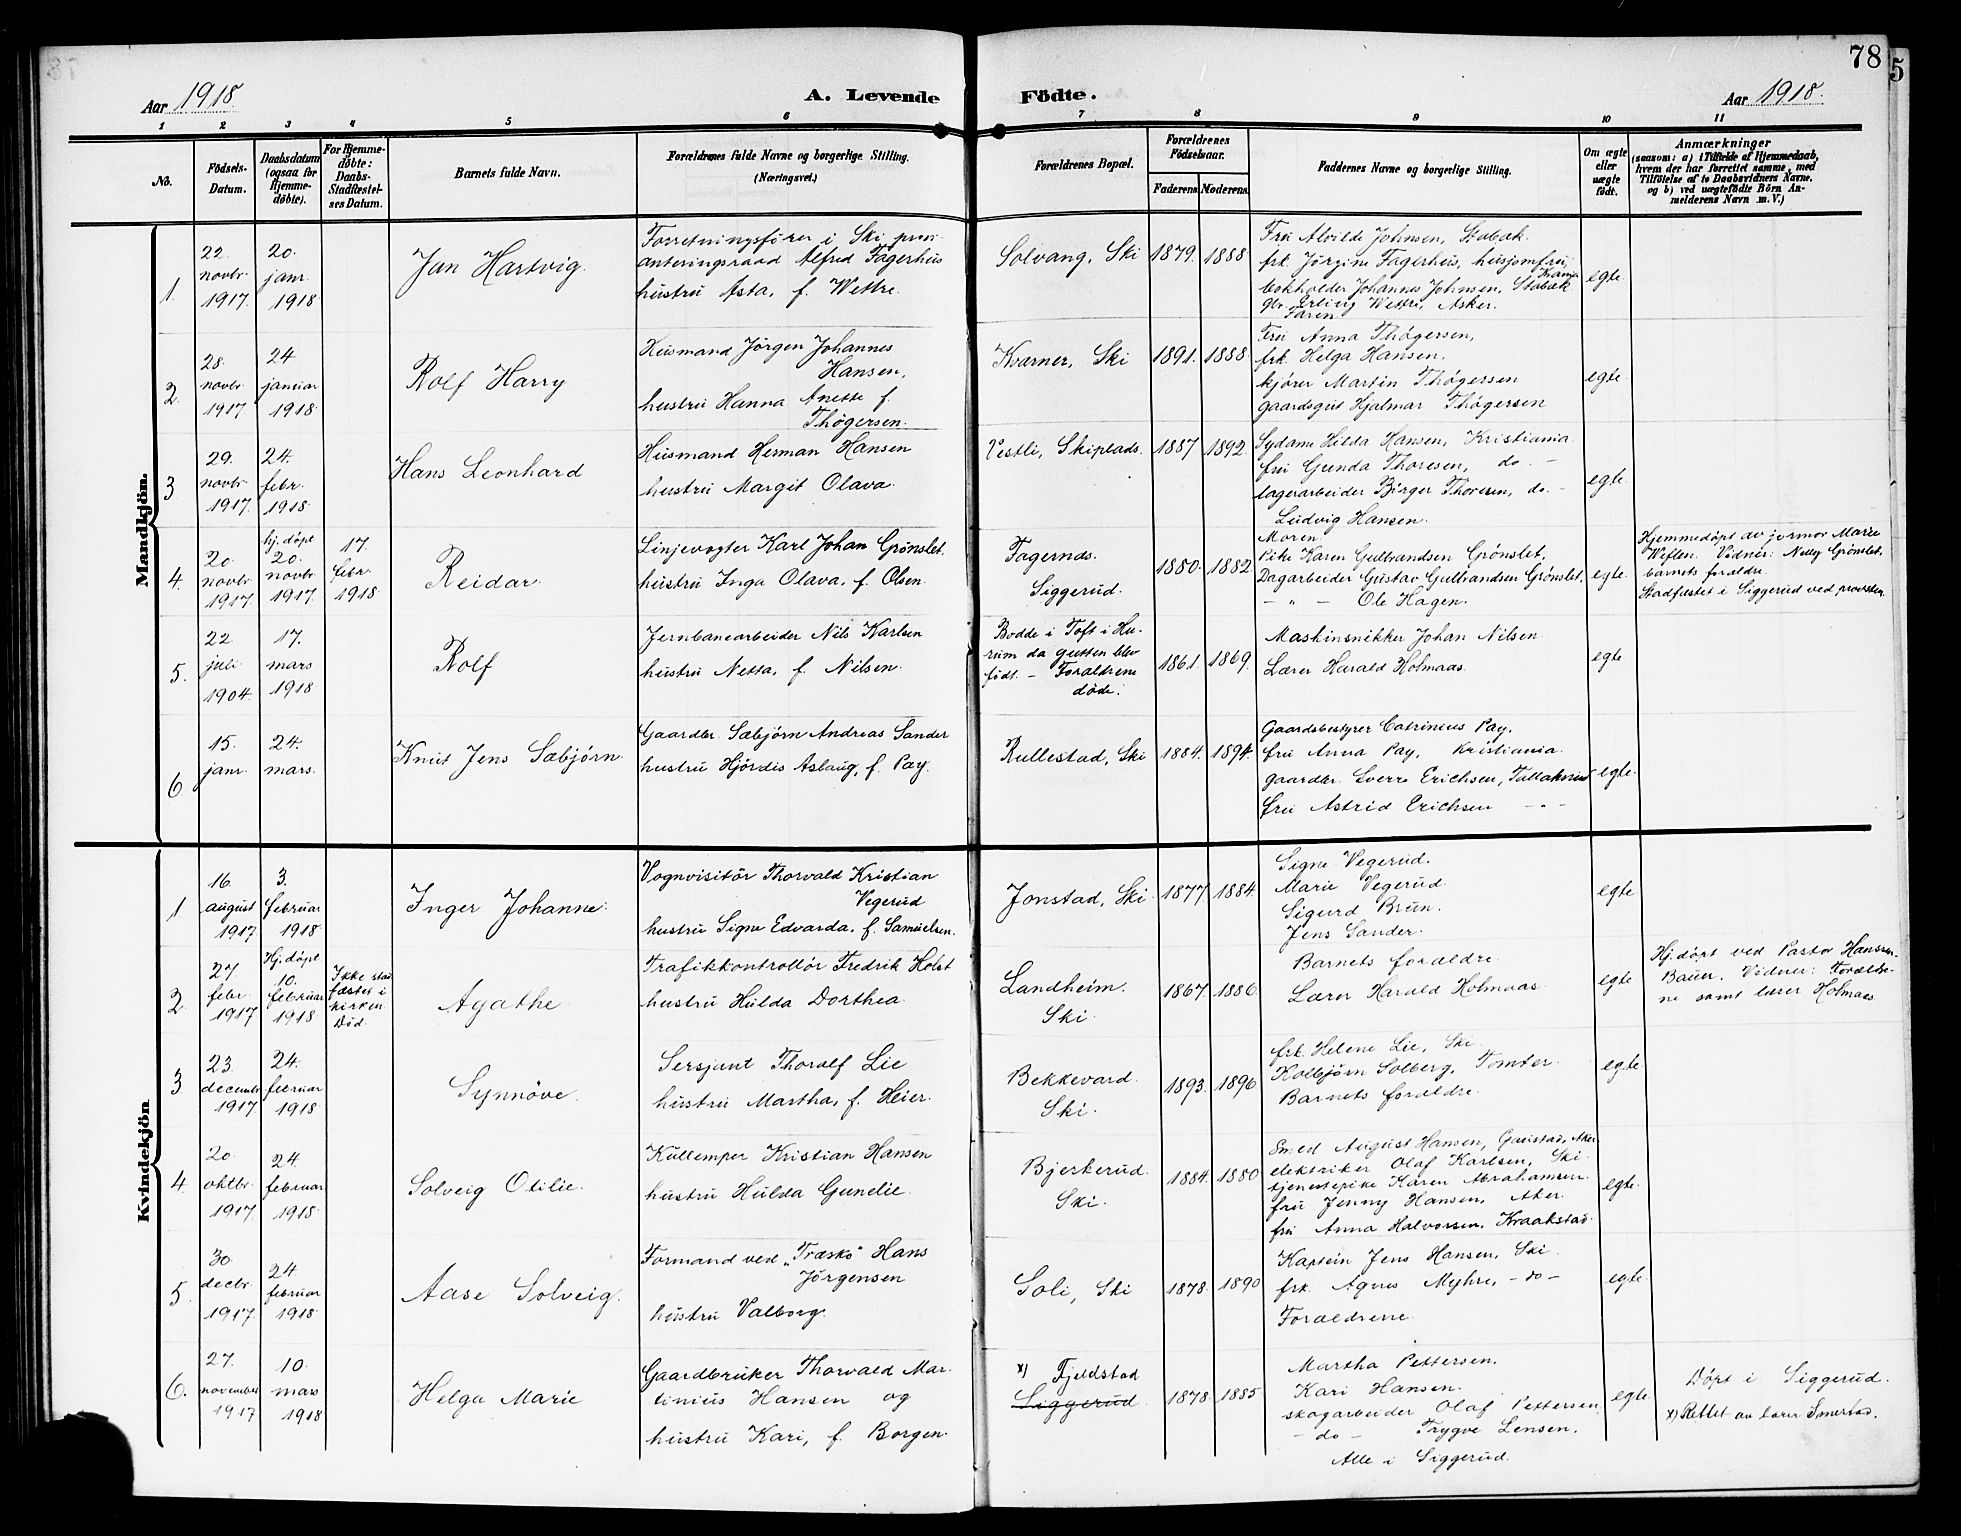 78
5
Aar 1918
A. Levende
Födte.
Aar 1918.
1 2 3 4 5 6 7 8 9 10 11
No.
Födsels-
Datum.
Daabsdatum
(ogsaa for
Hjemme-
döbte).
For Hjemme-
döbte:
Daabs-
Stadfæstel-
ses Datum.
Barnets fulde Navn.
Forældrenes fulde Navne og borgerlige Stilling.
(Næringsvei.)
Forældrenes Bopæl.
Forældrenes
Födselsaar.
Faderens. Moderens.
Faddernes Navne og borgerlige Stilling.
Om ægte
eller
uægte
födt.
Anmærkninger
(saasom: a) i Tilfælde af Hjemmedaab,
hvem der har forrettet samme, med
Tilföielse af to Daabsvidners Navne,
og b) ved uægtefödte Börn An-
melderens Navn m. V.)
Mandkjön.
1.
22.
novbr.
1917.
20.
janr.
1918
Jan Hartvig.
Forretningsfører i Ski provi-
anteringsraad Alfred Fagerhus
hustru Asta, f. Wettre.
Solvang, Ski
1879. 1888.
Fru Alvilde Johnsen, Stabæk.
frk. Jørgine Fagerhus, husjomfru, Krania
bokholder Johannes Johnsen, Stabæk
gbr. Erling Wettre, Asker.
Faren.
egte.
2.
28.
novbr.
1917.
24
januar
1918.
Rolf Harry
Husmand Jörgen Johannes
Hansen,
hustru Hanna Anette f.
Thøgersen.
Kvarner, Ski
1891. 1888.
Fru Anna Thøgersen,
frk. Helga Hansen.
kjører Martin Thøgersen
gaardsgut Hjalmar Thøgersen
egte.
3
29.
novbr.
1917.
24.
febr.
1918.
Hans Leonhard
Husmand Herman Hansen
hustru Margit Olava.
Vestli, Skiplads.
1887 1892.
Sydame Hilda Hansen, Kristiania.
fru Gunda Thoresen, do. -
lagerarbeider Birger Thoresen, do. -
Ludvig Hansen.
Moren.
egte.
4.
20.
novbr.
1917.
hj. døpt
20.
novbr.
1917.
17.
febr.
1918
Reidar.
Linjevogter Karl Johan Grønslet.
hustru Inga Olava, f. Olsen.
Fagernes.
Siggerud.
1880. 1882.
Pike Karen Gulbrandsen Grønslet,
Dagarbeider Gustav Gulbrandsen Grønslet,
- " - Ole Hagen.
egte.
Hjemmedøpt av jormor Marie
Weflen. Vidner: Nelly Grønslet,
barnets forældre.
Stadfæstet i Siggerud ved provsten.
5.
22
juli
1904.
17.
mars
1918
Rolf
Jernbanearbeider Nils Karlsen
hustru Netta, f. Nilsen.
Bodde i Toft i Hu-
rum da gutten blev
født. - Forældrene
døde.
1861. 1869.
Maskinsnikker Johan Nilsen
Lærer Harald Holmaas.
egte
6
15.
janr.
24.
mars.
Knut Jens Sæbjørn.
Gaardbr. Sæbjørn Andreas Sander
hustru Hjørdis Aslaug, f. Pay.
Rullestad, Ski
1884. 1894.
Gaardsbestyrer Catrinius Pay,
fru Anna Pay, Kristiania.
gaardbr. Sverre Erichsen,
fru Astrid Erichsen - " -
egte.
Kvindekjön
1
16.
august
1917
3.
februar
1918.
Inger Johanne.
Vognvisitör Thorvald Kristian
Vegerud
hustru Signe Edvarda, f. Samuelsen.
Jonstad, Ski
1877. 1884.
Signe Vegerud.
Marie Vegerud.
Sigurd Brun.
Jens Sander.
egte
2.
27.
febr.
1917
Hj. døpt
10.
februar
1918
Ikke stad
fæstet i
kirken.
Död.
Agathe
Trafikkontrollör Fredrik Holst
hustru Hulda Dorthea.
Landheim.
Ski.
1867. 1886.
Barnets forældre.
Lærer Harald Holmaas.
egte
Hj. døpt ved Pastor Hanssen-
Bauer. Vidner: Forældre-
ne samt lærer Holmaas
3
23.
decembr
1917.
24.
februar
1918.
Synnöve.
Sersjant Thoralf Lie
hustru Martha, f. Heier.
Bekkevard.
Ski.
1893. 1896.
frk. Helene Lie, Ski.
Kolbjørn Solberg, Tomter.
Barnets forældre.
egte
4.
20.
oktbr.
1917.
24.
februar
1918.
Solveig Otilie.
Kullemper Kristian Hansen
hustru Hulda Gunelie.
Bjerkerud.
Ski.
1884. 1880
Smed August Hansen, Gaustad, Aker
elektriker Olaf Karlsen, Ski.
tjenestepike Karen Abrahamsen.
fru Jenny Hansen, Aker.
fru Anna Halvorsen, Kraakstad.
egte.
5.
30.
decbr.
1917.
24.
februar
1918
Aase Solveig.
Formand ved „Træsko" Hans
Jørgensen
hustru Valborg.
Soli, Ski
1878. 1890
Kaptein Jens Hansen, Ski.
frk. Agnes Myhre, - do -
Forældrene.
egte.
6.
27.
november
1917
10.
mars
1918
Helga Marie
Gaardbruker Thorvald Mar-
tinius Hansen og
hustru Kari, f. Borgen.
x) Fjeldstad
Siggerud.
1878. 1885.
Martha Pettersen.
Kari Hansen.
skogarbeider Olaf Pettersen,
- do - Trygve Lensen.
Alle i Siggerud.
egte
Døpt i Siggerud.
x) Rettet av lærer